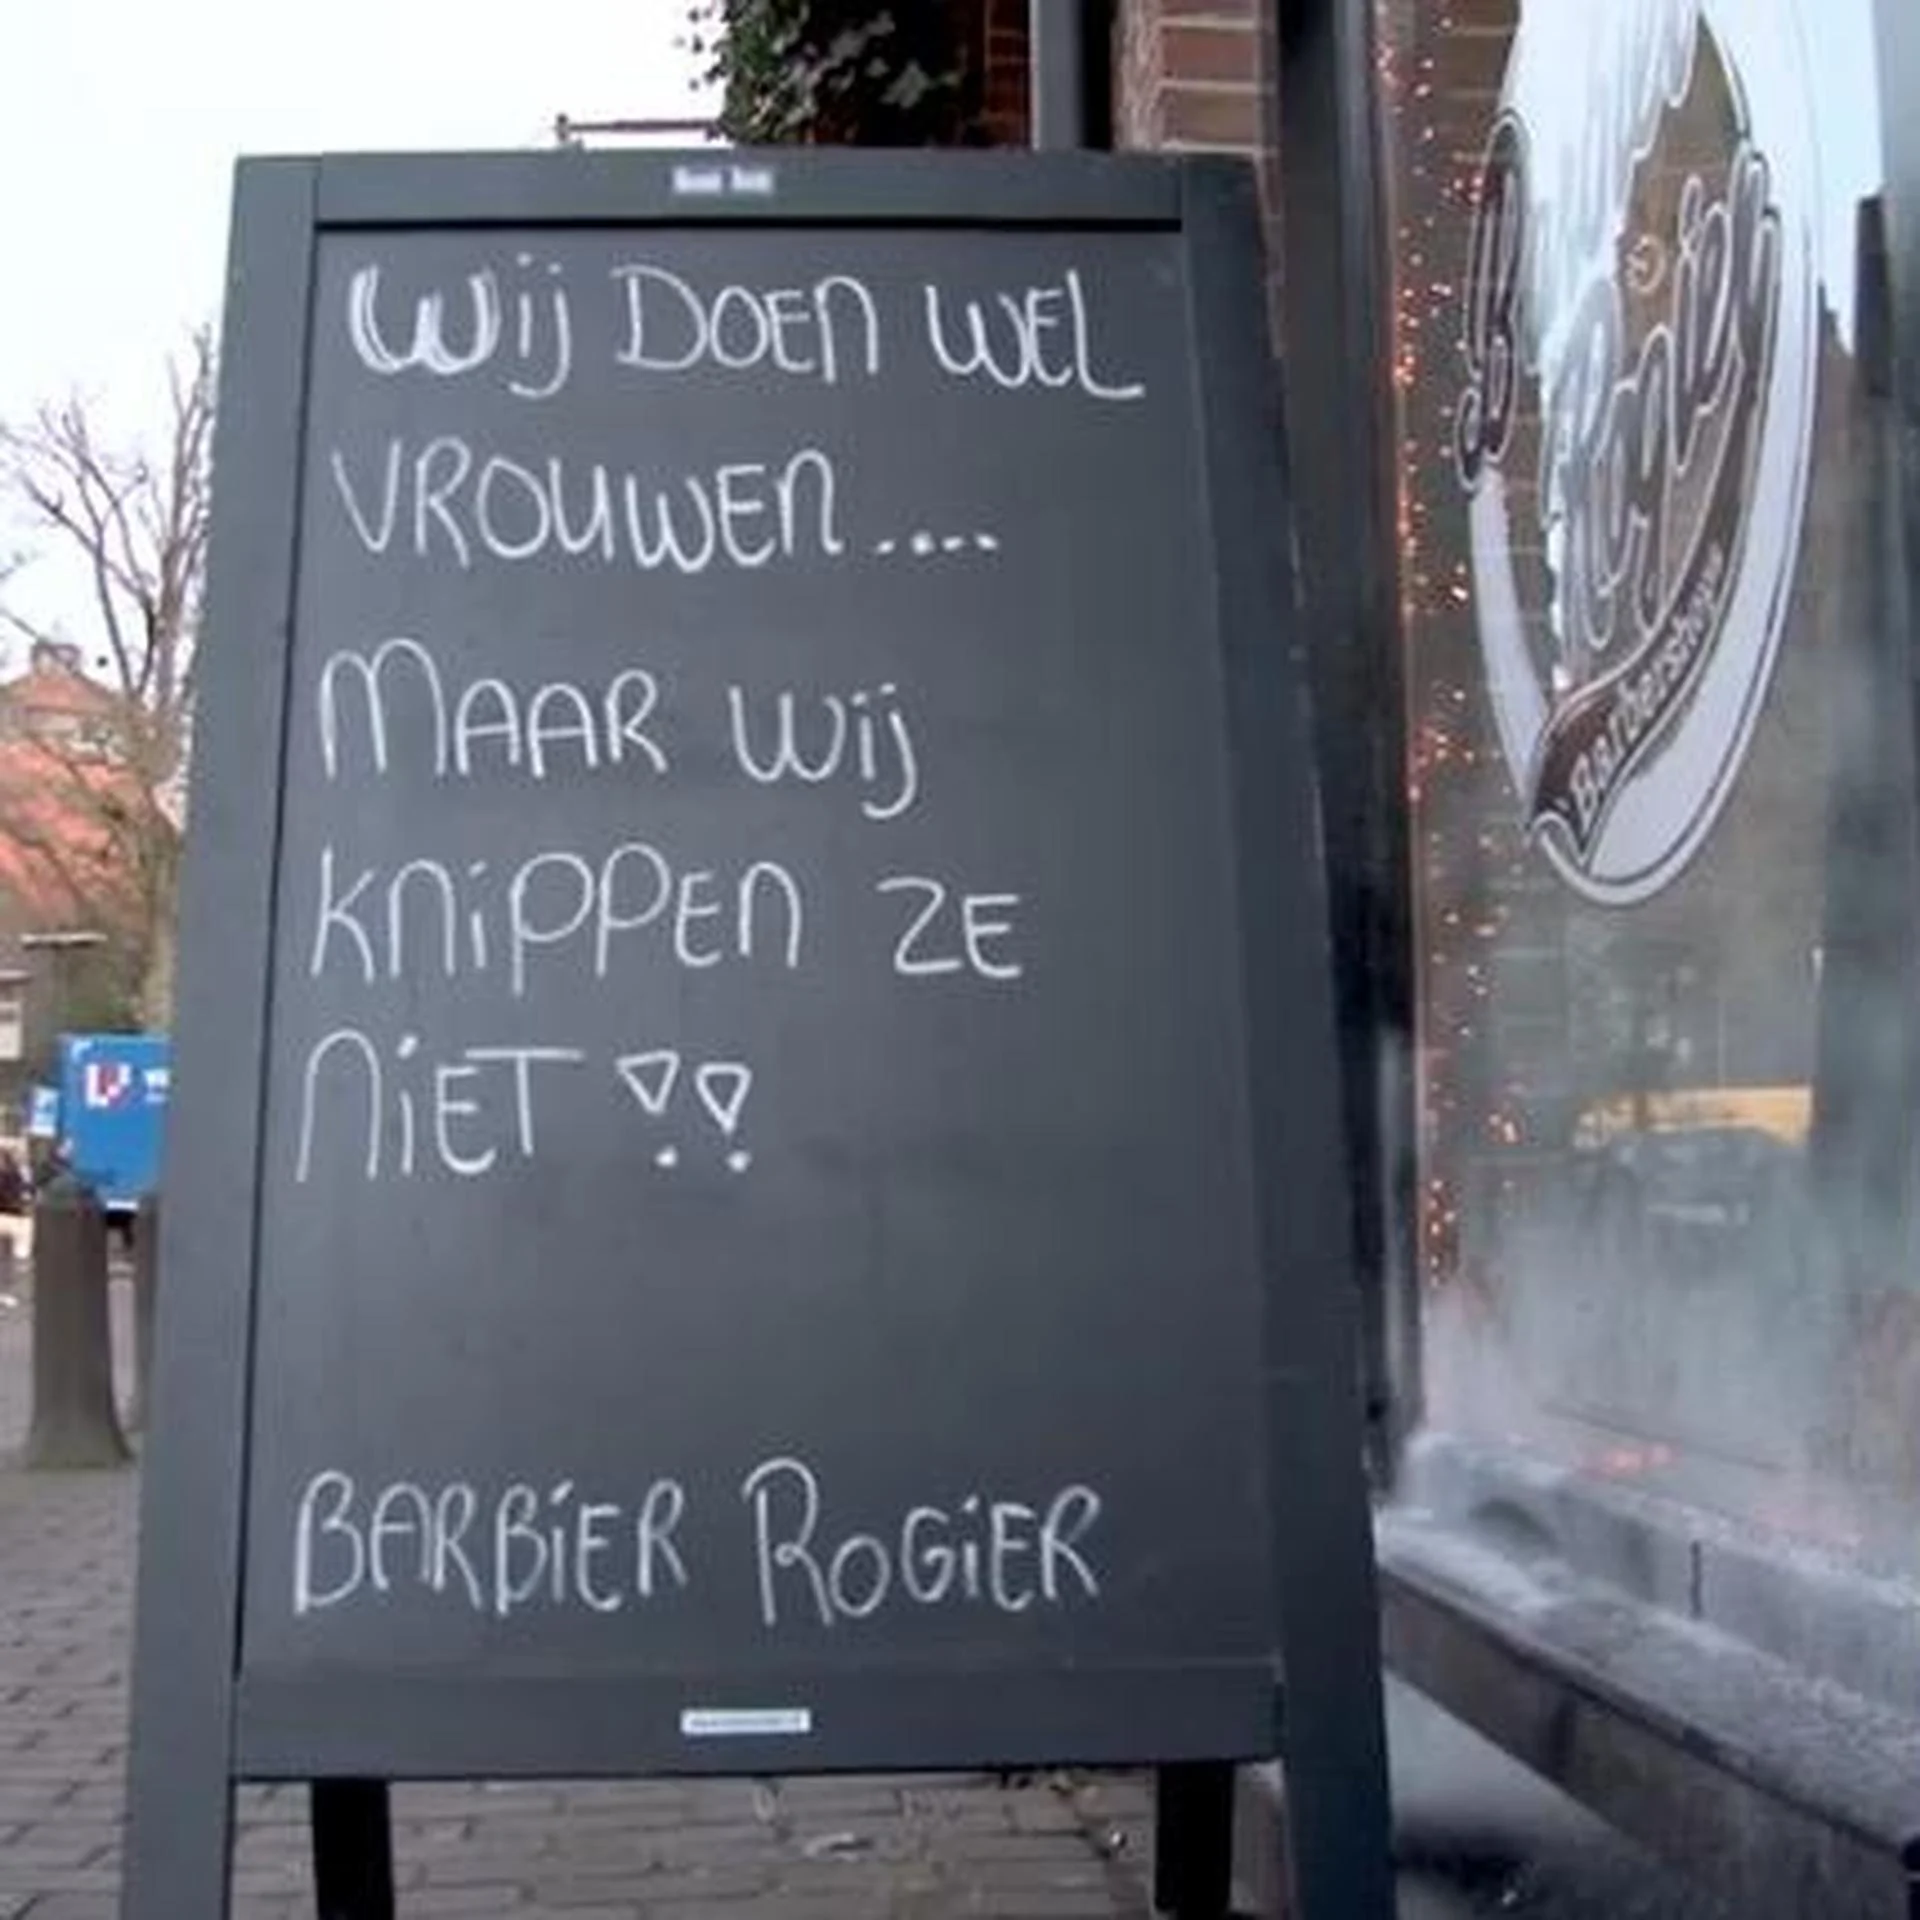 Wij DOEN WEL
VROUWEN ....
MAAR Wij
KNiPPEN ZE
NiET !!
BARBiER ROGiER
Barbershop